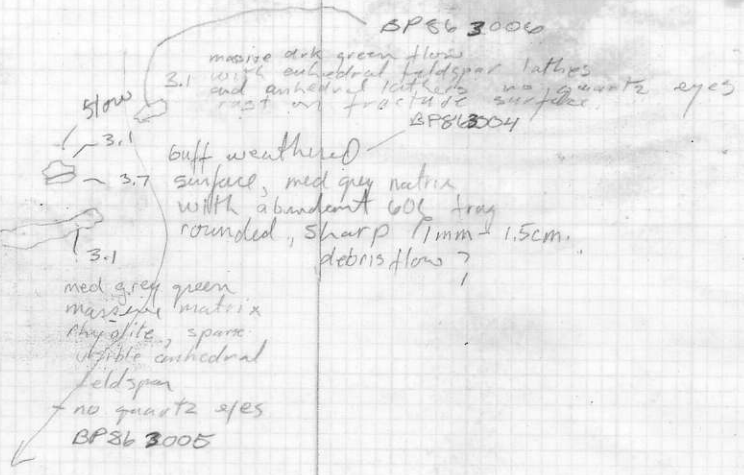 BP86 3006
massive drk green flow
3.1 with euhedral feldspar lathes
and anhedral lathers no quartz eyes
rust on fracture surface.
BP863004
flow
3.1
buff weathered
3.7 surface, med grey matrix
with abundant frag
rounded, sharp 1mm - 1.5cm.
debris flow ?
3.1
med grey green
massive matrix
rhyolite, sparse
visible anhedral
feldspar
- no quartz eyes
BP86 3005